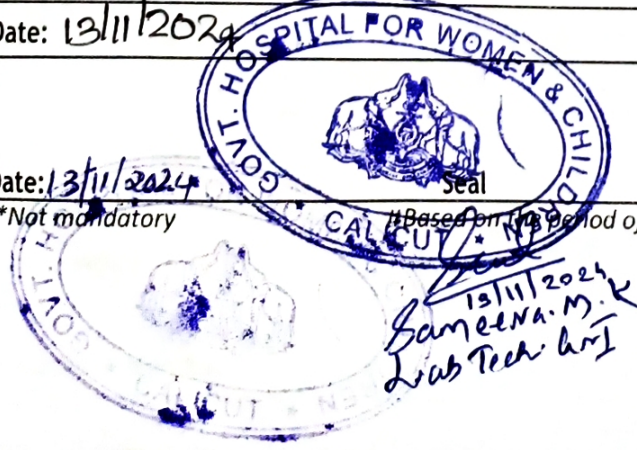 Date: 13/11/2024
GOVT. HOSPITAL FOR WOMEN & CHILDREN
CALICUT
Date: 13/11/2024
Seal
*Not mandatory
#Based on the period o
GOVT. H
CALICUT
13/11/2024
Sameena. M. K
Lab Tech. Gr I